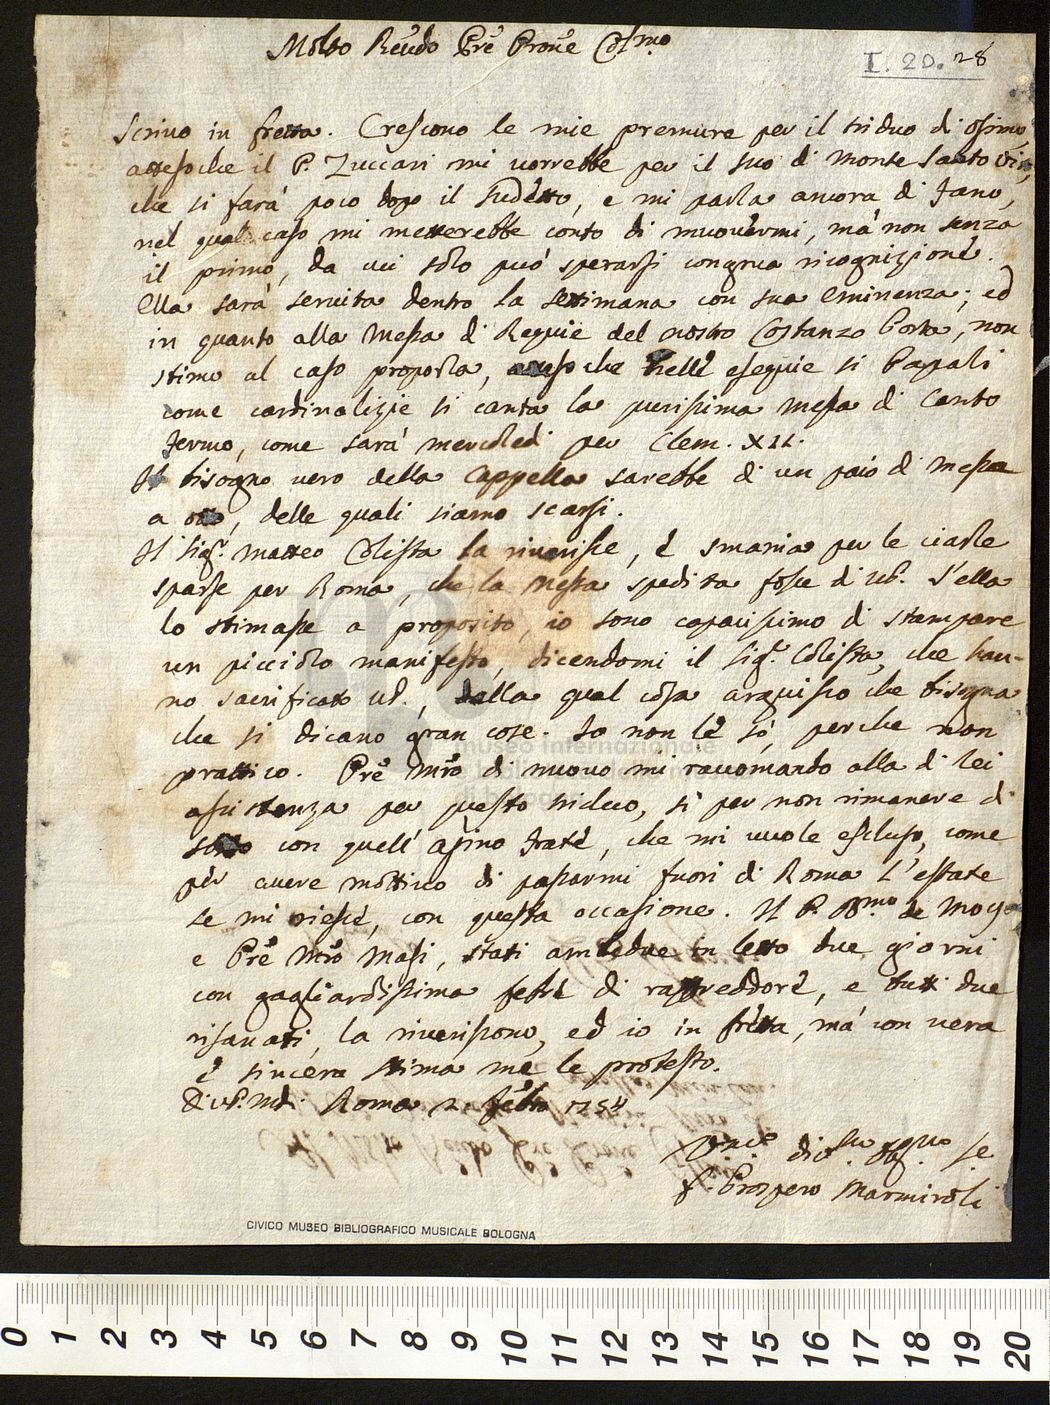 Molto Reũdo Prẽ Prone Colmo
I. 20. 28
Scrivo in fretta. Crescono le mie premure per il triduo di Osimo
attesoche il P. Zuccari mi vorrebbe per il suo di Monte Santo Vito,
che si farà poco dopo il sudetto, e mi parla ancora di Fano,
nel qual caso mi metterebbe conto di muovermi, mà non senza
il primo, da cui solo può sperarsi congrua ricognizione.
Ella sarà servita dentro la settimana con sua Eminenza; ed
in quanto alla Messa di Requie del nostro Costanzo Porta, non
stimo al caso proposta, attesoche nelle esequie si Papali
come cardinalizie si canta la purissima Messa di Canto
fermo, come sarà mercoledi per Clem. XII.
Il bisogno vero della Cappella sarebbe di un paio di Messa
a otto, delle quali siamo scarsi.
Il Sigr. Matteo Colista la riverisce, è smania per le ciarle
sparse per Roma, che la Messa spedita fosse di VP. S'ella
lo stimasse a proposito, io sono capacissimo di stampare
un picciolo manifesto, dicendomi il Sigr. Colista, che han-
no sacrificato VP., dalla qual cosa arguisco che bisogna
che si dicano gran cose. Io non lè sò, perche non
prattico. Prẽ Mrõ di nuovo mi raccomando alla di lei
assistenza per questo triduo, sì per non rimanere di
sotto con quell' asino frate, che mi vuole escluso, come
per avere mottivo di passarmi fuori di Roma l'estate
se mi riesce, con questa occasione. Il P. Rmo de Moye
e Prẽ Mrõ Masi, stati ambedue in letto due giorni
con gagliardissima febre di raffreddore, e tutti due
risanati, la riveriscono, ed io in fretta, mà con vera
è sincera stima me le protesto.
Di VP. M. Roma 2 febro 1754
divmo obgmo Se
f. Prospero Marmiroli
CIVICO MUSEO BIBLIOGRAFICO MUSICALE BOLOGNA
museo internazionale
e biblioteca della musica
di bologna
0 1 2 3 4 5 6 7 8 9 10 11 12 13 14 15 16 17 18 19 20